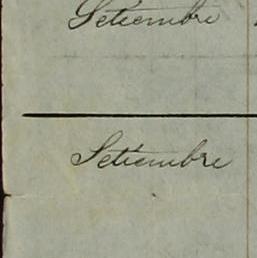 Setiembre
Setiembre